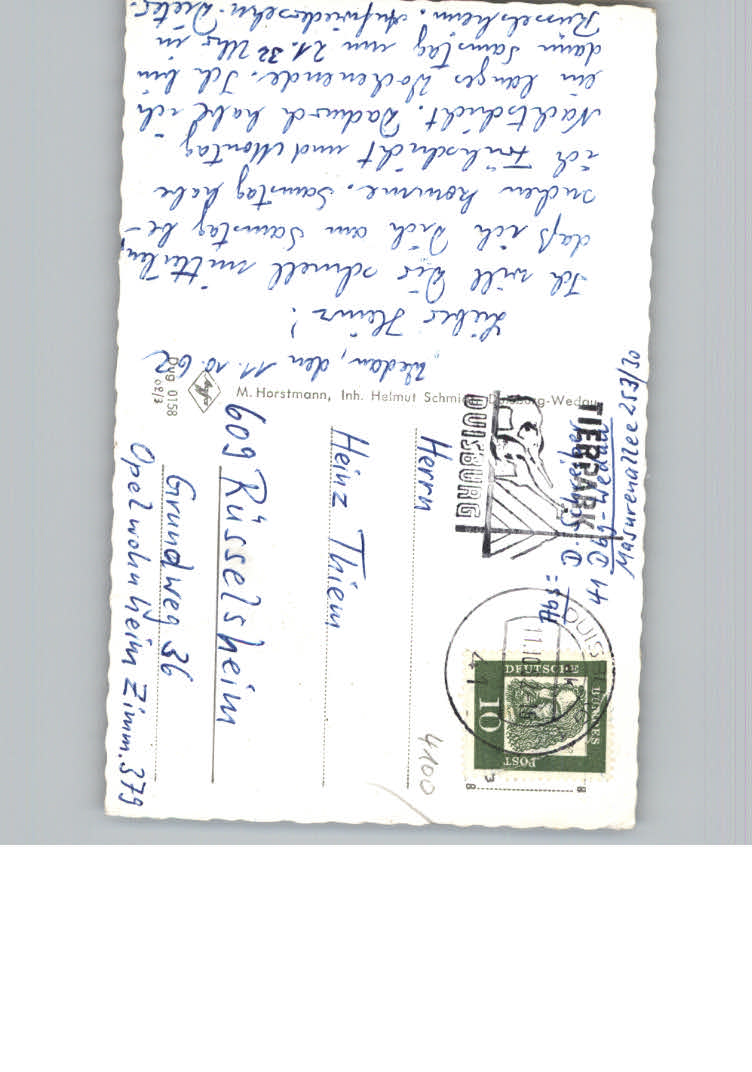 Wedau, den 11.10.62
Lieber Heinz!
Ich will Dir schnell mitteilen,
daß ich Dich am Samstag be-
suchen komme. Samstag habe
ich Frühschicht und Montag
Nachtschicht. Dadurch habe ich
ein langes Wochenende. Ich bin
dann Samstag um 21.32 Uhr in
Rüsselsheim. Aufwiedersehn Dieter.
M. Horstmann, Inh. Helmut Schmidt, Duisburg-Wedau
Agfa
Dvg 0158
02/3
Abs:
D. Schreiber
41 Dbg-Wedau
Masurenallee 253/30
TIERPARK
DUISBURG
DUISBURG
11.10.62
41
DEUTSCHE
BUNDES
POST
10
4100
Herrn
Heinz Thiem
609 Rüsselsheim
Grundweg 36
Opelwohnheim Zimm. 379